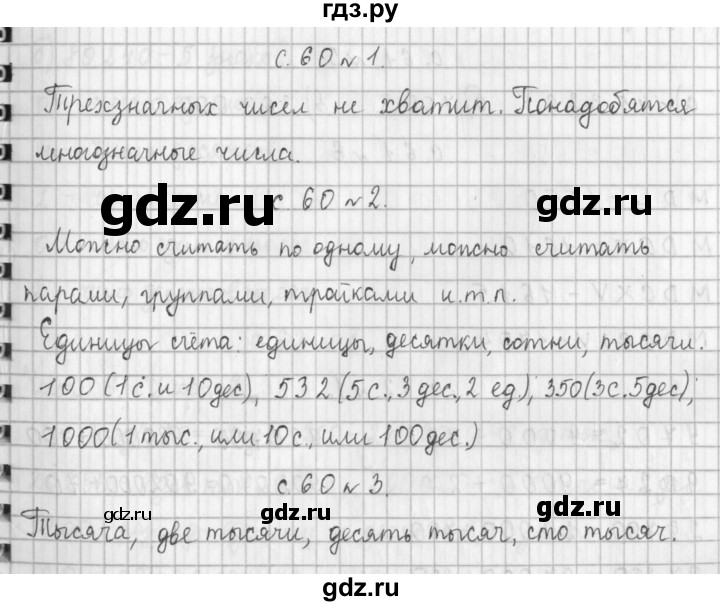 гдз.ру
с. 60 № 1.
Трехзначных чисел не хватит. Понадобятся
многозначные числа.
gdz.ru
gdz.ru
с. 60 № 2.
Можно считать по одному, можно считать
парами, группами, тройками и.т.п.
Единицы счёта: единицы, десятки, сотни, тысячи.
100 (1с. и 10дес), 532 (5с., 3 дес., 2 ед.), 350 (3с. 5дес),
1000 (1 тыс., или 10с., или 100дес.)
с. 60 № 3.
gdz.ru
gdz.ru
Тысяча, две тысячи, десять тысяч, сто тысяч.
gdz.ru